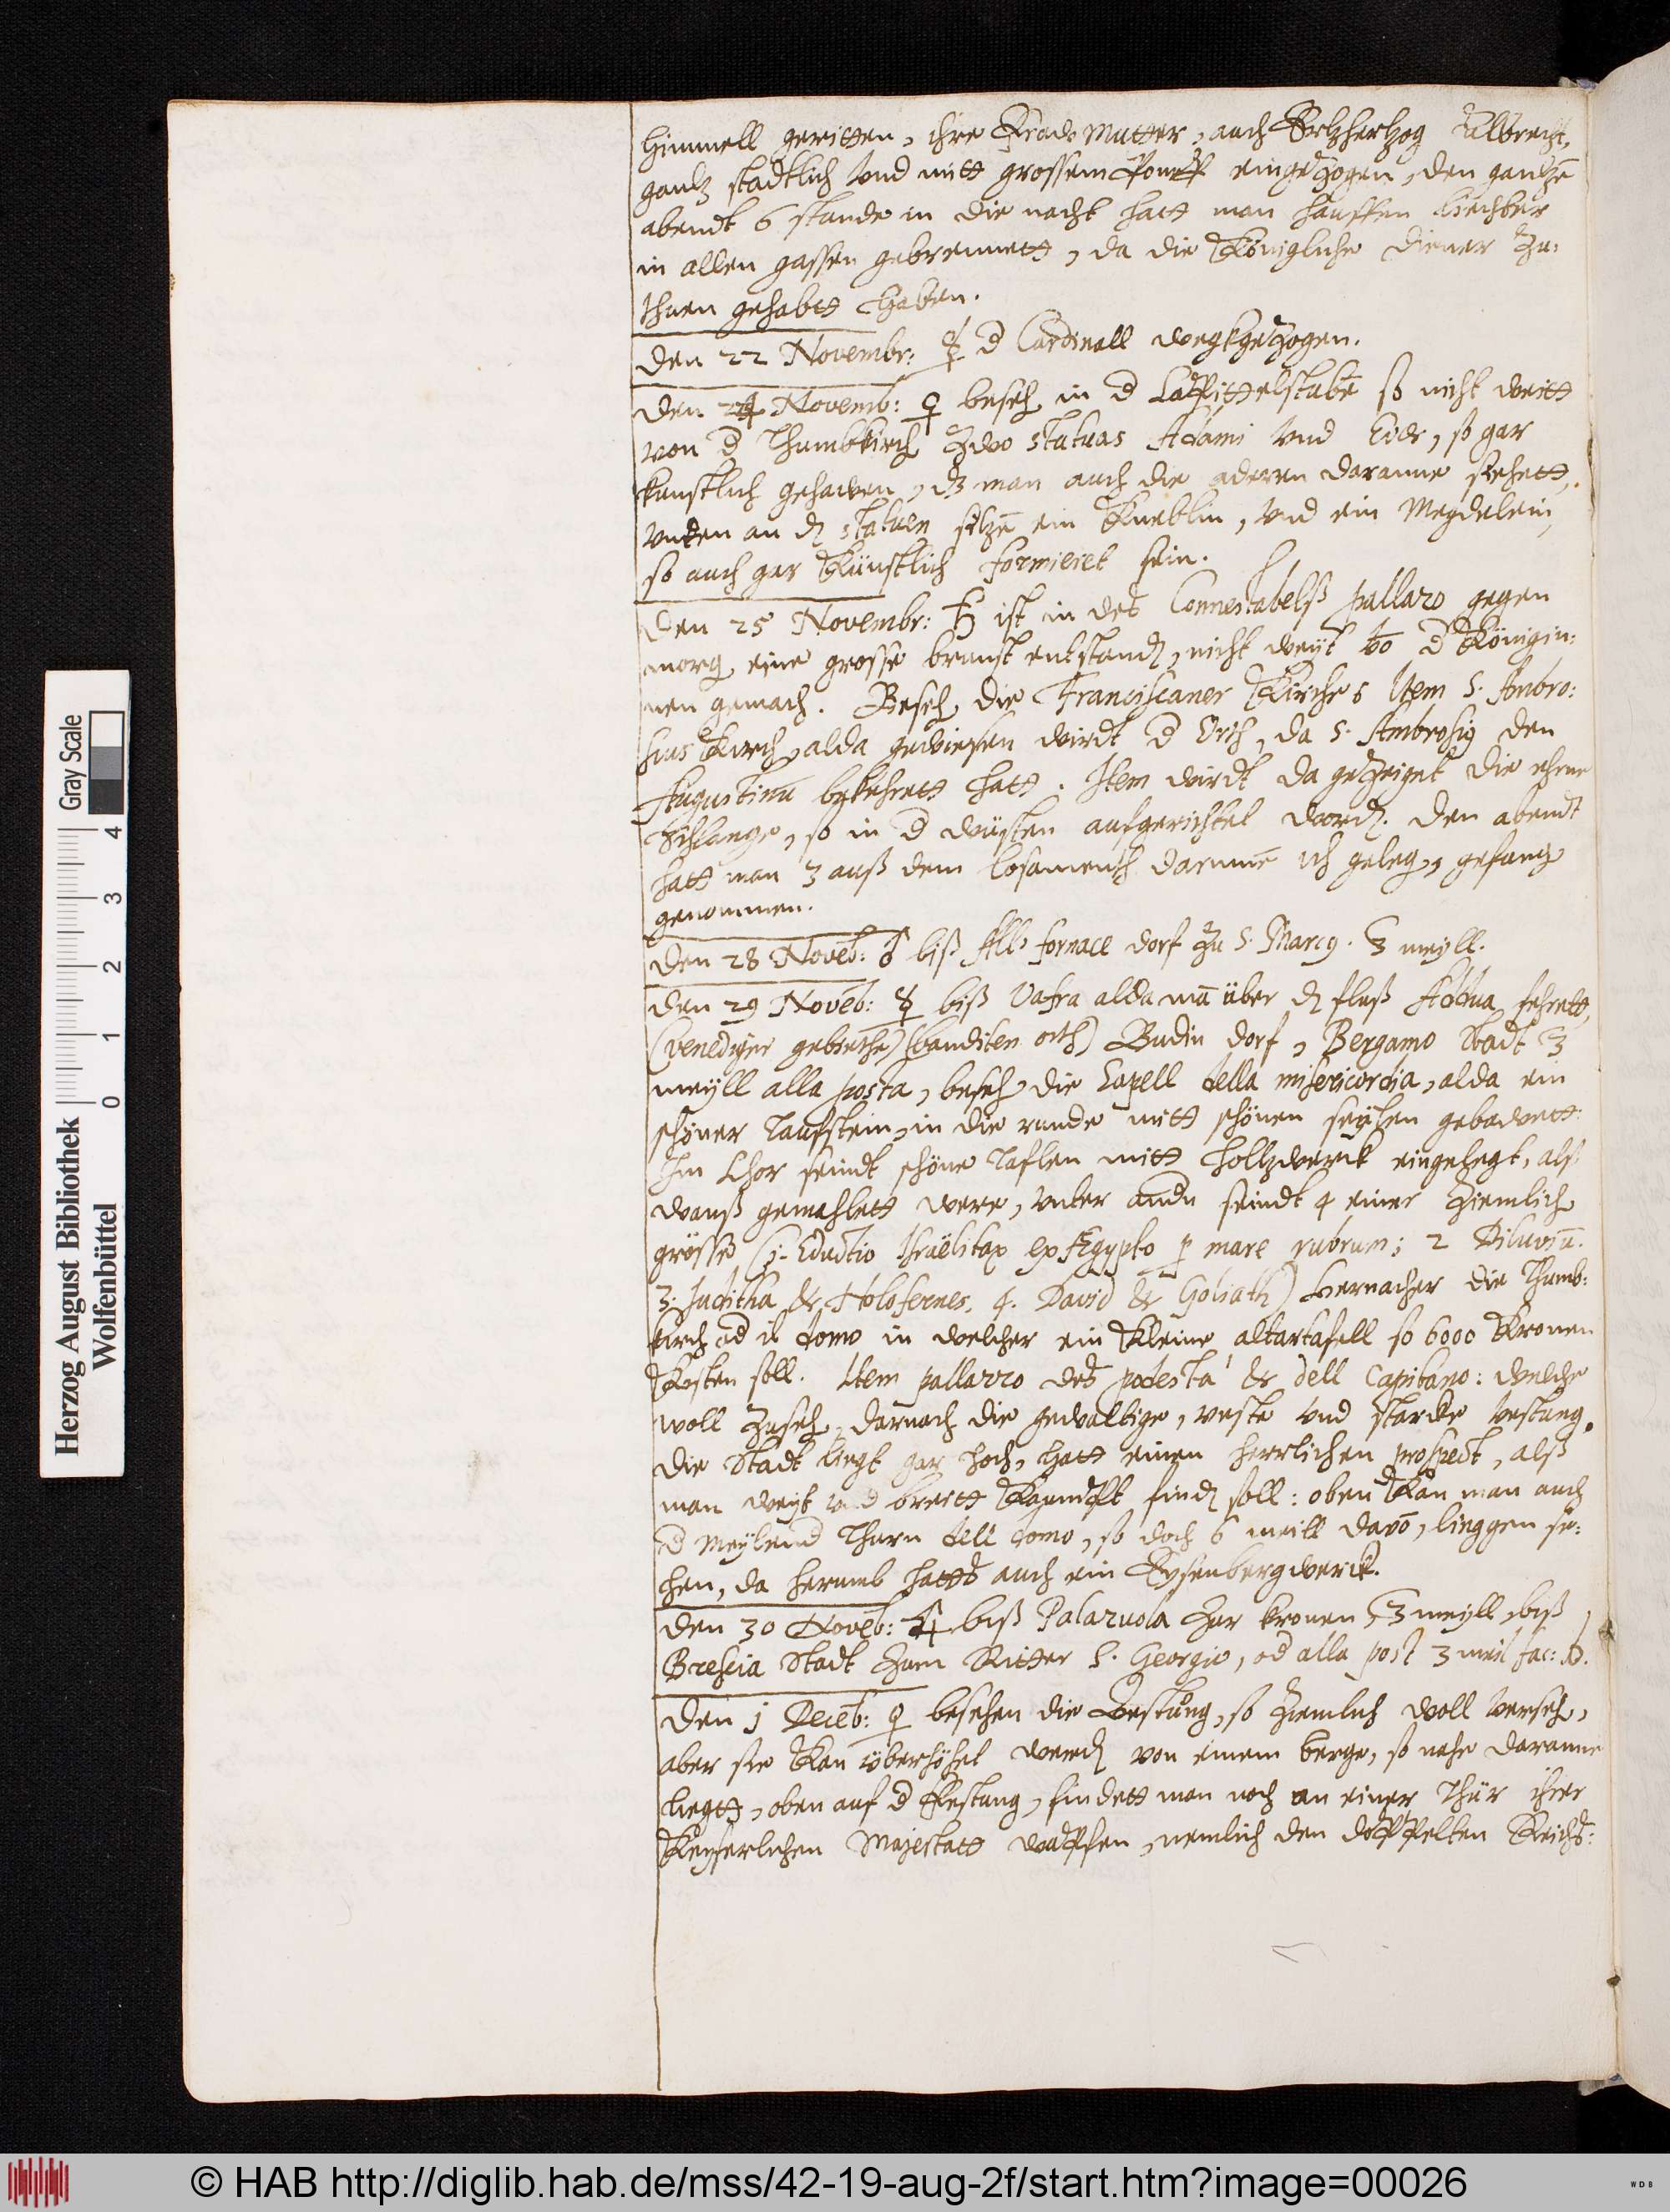 himmell geritten, ihre Fraw Mutter, auch Ertzhertzog Albrecht,
gantz stadtlich Vnd mitt grossem Pompp eingezogen, den gantzē
abendt 6 stunde in die nacht hatt man hauffen liechter
in allen gassen gebrennett, da die Königliche diener zu
thuen gehabtt haben.
Den 22 Novembr: ☿ d Cardinall wegkgezogen.
Den 24 Novemb: ♀ beseh in d Cappittelstubē so nicht weitt
von d Thumbkirch zwo statuas Adami Vnd Evæ, so gar
kunstlich gehawen, dz man auch die adern daranne siehett,
Vnten an dē statuen sitzē ein Kneblin, Vnd ein Megdelein,
so auch gar Künstlich formieret sein.
Den 25 Novembr: ♄ ist in des Connestabelß pallazo gegen
morg eine grosse brunst entstandē, nicht weyt vō d Königin:
nen gemach. Beseh die Franciscaner Kirche Item S. Ambro:
sius Kirch, alda gewiesen wirdt d Orth, da S. Ambrosiꝯ den
Augustinū bekehrett hatt. Item wirdt da gezeiget die ehrne
Schlange, so in d wüsten aufgerichtet wordē. Den abendt
hatt man 3 auß dem losamenth darinnē ich geleg, gefang
genommen.
Den 28 Novēb: ♂ biß Alle fornace dorf zu S. Marcꝯ. 3 meyll.
Den 29 Novēb: ☿ biß Vafra alda mā über dē fluß Addua fehrett,
(Venediger gebiethe) (banditen orth) Budin dorf, Bergamo Stadt 3
meyll alla posta, beseh die Capell della misericordia, alda ein
schöner Taufstein, in die runde mitt schönen seylen gebawett.
Im Chor seindt schöne Taflen mitt hollzwerck eingelegt, als
wanß gemahlett were, Vnter andn seindt 4 einer ziemlich
grösse (1. Eductio Israëlitar ex Ægypto ꝑ mare rubrum; 2 Diluviū.
3. Juditha & Holofernes. 4. David & Goliath) Hernacher die Thumb:
kirch od il domo in welcher ein Kleine altartafell so 6000 Kronen
Kosten soll. Item pallazzo des podestà & dell Capitano: welche
woll zuseh, darnach die gewaltige, veste Vnd starcke Vestung.
die Stadt liegt gar hoch, hatt einen herrlichen prospect, alß
man weyt vnd breitt findē soll: oben Kan man auch
d Meylend Thurn dell domo, so doch 6 meill davō, linggen se:
hen, da herumb hatts auch ein Eysenbergwerck.
Den 30 Novēb: ♃ biß Palazuola zur kronen 3 meyll, biß
Brescia Stadt zum Ritter S. Georgio, od alla post 3 meil fac: D.
Den 1 Decēb: ♀ besehen die Vestung, so ziemlich woll Verseh,
aber sie Kan überhöhet werdē von einem berge, so nahe daranne
liegtt, oben auf d Festung, findett man noch an einer Thür ihrer
Keyserlichen Majestatt wappfen, nemlich den doppelten Reichs:
Herzog August Bibliothek
Wolfenbüttel
Gray Scale
0 1 2 3 4
© HAB http://diglib.hab.de/mss/42-19-aug-2f/start.htm?image=00026
WDB